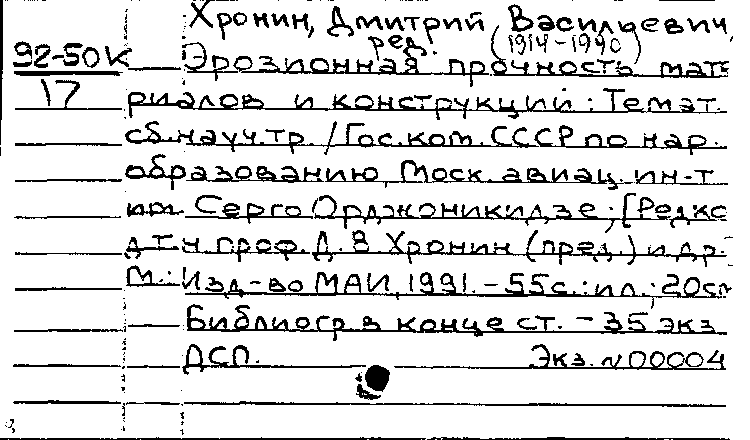 Хронин, Дмитрий Васильевич,
ред. (1914-1990)
92-50К Эрозионная прочность мате
17 риалов и конструкций: Темат.
сб. науч. тр. / Гос. ком. СССР по нар.
образованию, Моск. авиац. ин-т
им. Серго Орджоникидзе; [Редкс
д.т.н. проф. Д. В Хронин (пред.) и др.
М.: Изд-во МАИ, 1991. - 55с.: ил.; 20см
Библиогр. в конце ст. - 35 экз
ДСП. Экз. N00004